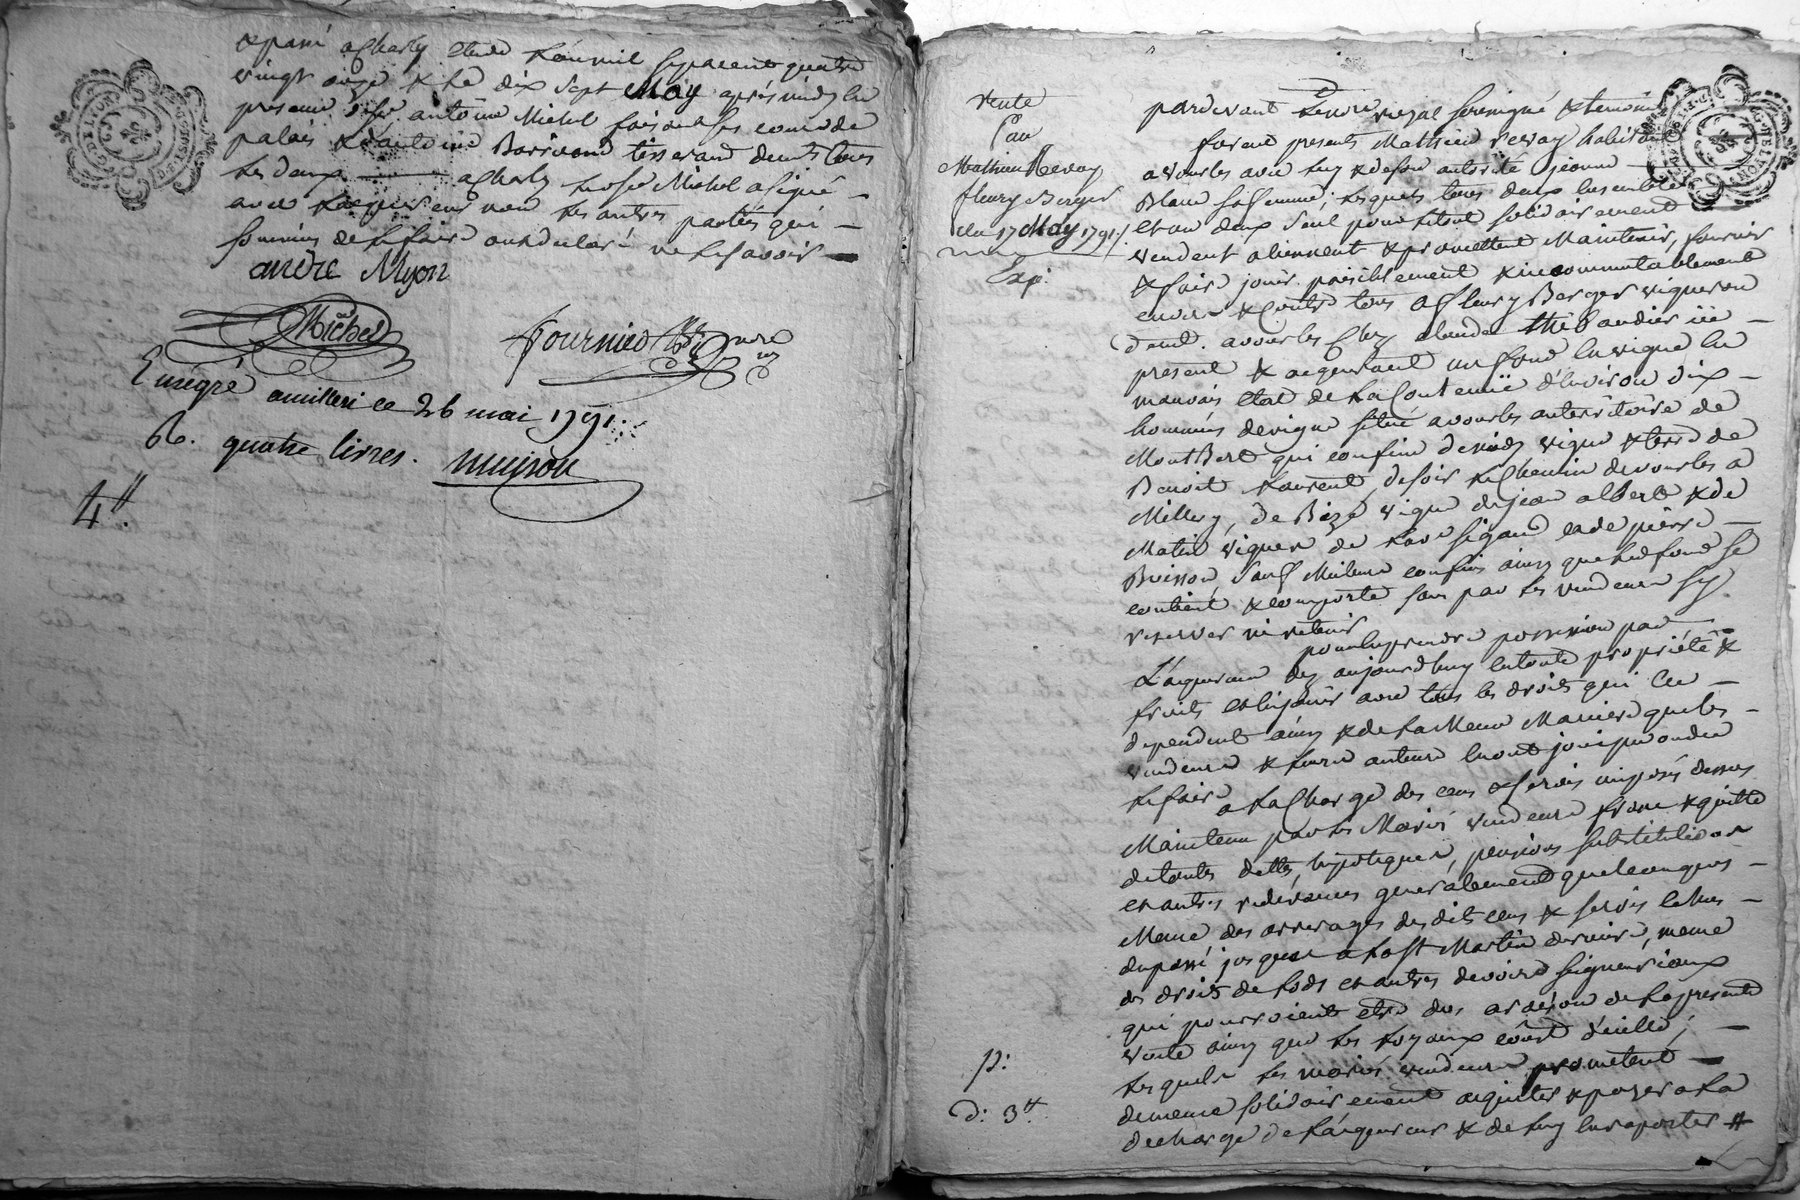 & passé a Charly Etude l'an mil sept cent quatre
vingt onze & le dix sept May après midy en
presence de Sr. antoine Michel faisant les ecoles de
palais & d'antoine tisserand demts tous
les deux a Charly led sr Michel a signé
avec l'acquereur non les autres parties qui
sommées de le faire ont declaré ne le savoir
andré Myon
Michel
fournier
Enregré a milleri ce 26 mai 1791.
R. quatre livres.
4ᴴ.
vente
Par
Mathieu Revay
fleury Berger
du 17 May 1791./
Exp:
pardevant Le nre royal soussigné & temoins
furent presents Mathieu revay habitant
a vourles avec luy & de son autorité jeanne
Blanc sa femme, lesquels tous deux ensemble
et un deux seul pour le tout solidairement
vendent alienent & promettent Maintenir, fournir
& faire jouir paisiblement & incommutablement
envers & Contre tous a fleury Berger vigneron
demt. a vourles Chez claude thibaudier ici
present & acquereur un fond en vigne en
mauvais etat de la Contenüe d'environ dix
hommées de vigne situé a vourles au territoire de
MontBert qui confine de midy vigne & terre de
Benoit Laurent, de soir le Chemin de vourles a
Millery, de Bize vigne de jean albert & de
Matin vignes de et de pierre
Buisson, sauf Meilleurs confins ainsy que led fond se
contient & comporte sans par les vendeurs s'y
reserver ni retenir
pour en prendre possession par
L'acquereur dez aujourd'huy en toute proprieté &
fruits et en jouir avec tous les droits qui en
dependent ainsy & de la Meme Maniere que les
vendeurs & leurs auteurs en ont joui pu ou du
le faire a la Charge des cens & servis imposés dessus
Maintenu par les Mariés vendeurs franc & quitte
de toutes dettes, hypotheques, pensions substitutions
et autres redevances generalement quelconques
Meme des arrerages desdits cens & servis echus
du passé jusques a la St Martin derniere, meme
des droits de lods et autres devoirs seigneuriaux
qui pourroient etre dus a raison de la presente
vente ainsy que les loyaux coust d'icelle,
lesquels les mariés vendeurs prometent
de meme solidairement aquitter & payer a la
decharge de l'acquereur & de luy en raporter #
p:
d: 3ᴴ.